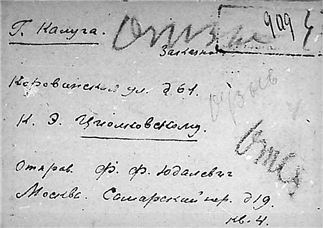 Г. Калуга.
909
Заказное
Коровинская ул. д 61.
К. Э. Циолковскому.
Отправ. Ф. Ф. Юдалевич
Москва. Самарский пер. д 19.
кв. 4.